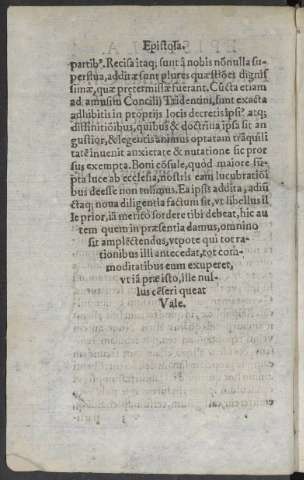 Epistola.
partibꝰ. Recisa itaq; sunt à nobis nõnulla su-
perflua, additæ sunt plures quæstiões dignis
simæ, quæ pretermissæ fuerant. Cũcta etiam
ad amusim Concilij Tridentini, sunt exacta
adhibitis in proprijs locis decretis ipsiꝰ atq;
diffinitiõibus, quibus & doctrina ipsa sit an
gustior, & legentis animus optatam trãquili
tatẽ inuenit anxietate & nutatione sic pror
sus exempta. Boni cõsule, quòd maiore sũ-
pta luce ab ecclesia, nostris eam lucubratiõi
bus deesse non tulimus. Ea ipsis addita, adiũ
ctaq; noua diligentia factum sit, vt libellus il
le prior, iã merito sordere tibi debeat, hic au
tem quem in præsentia damus, omnino
sit amplectendus, vtpote qui tot ra-
tionibus illi antecedat, tot com-
moditatibus eum exuperet,
vt iã præ isto, ille nul-
lus cẽseri queat
Vale.